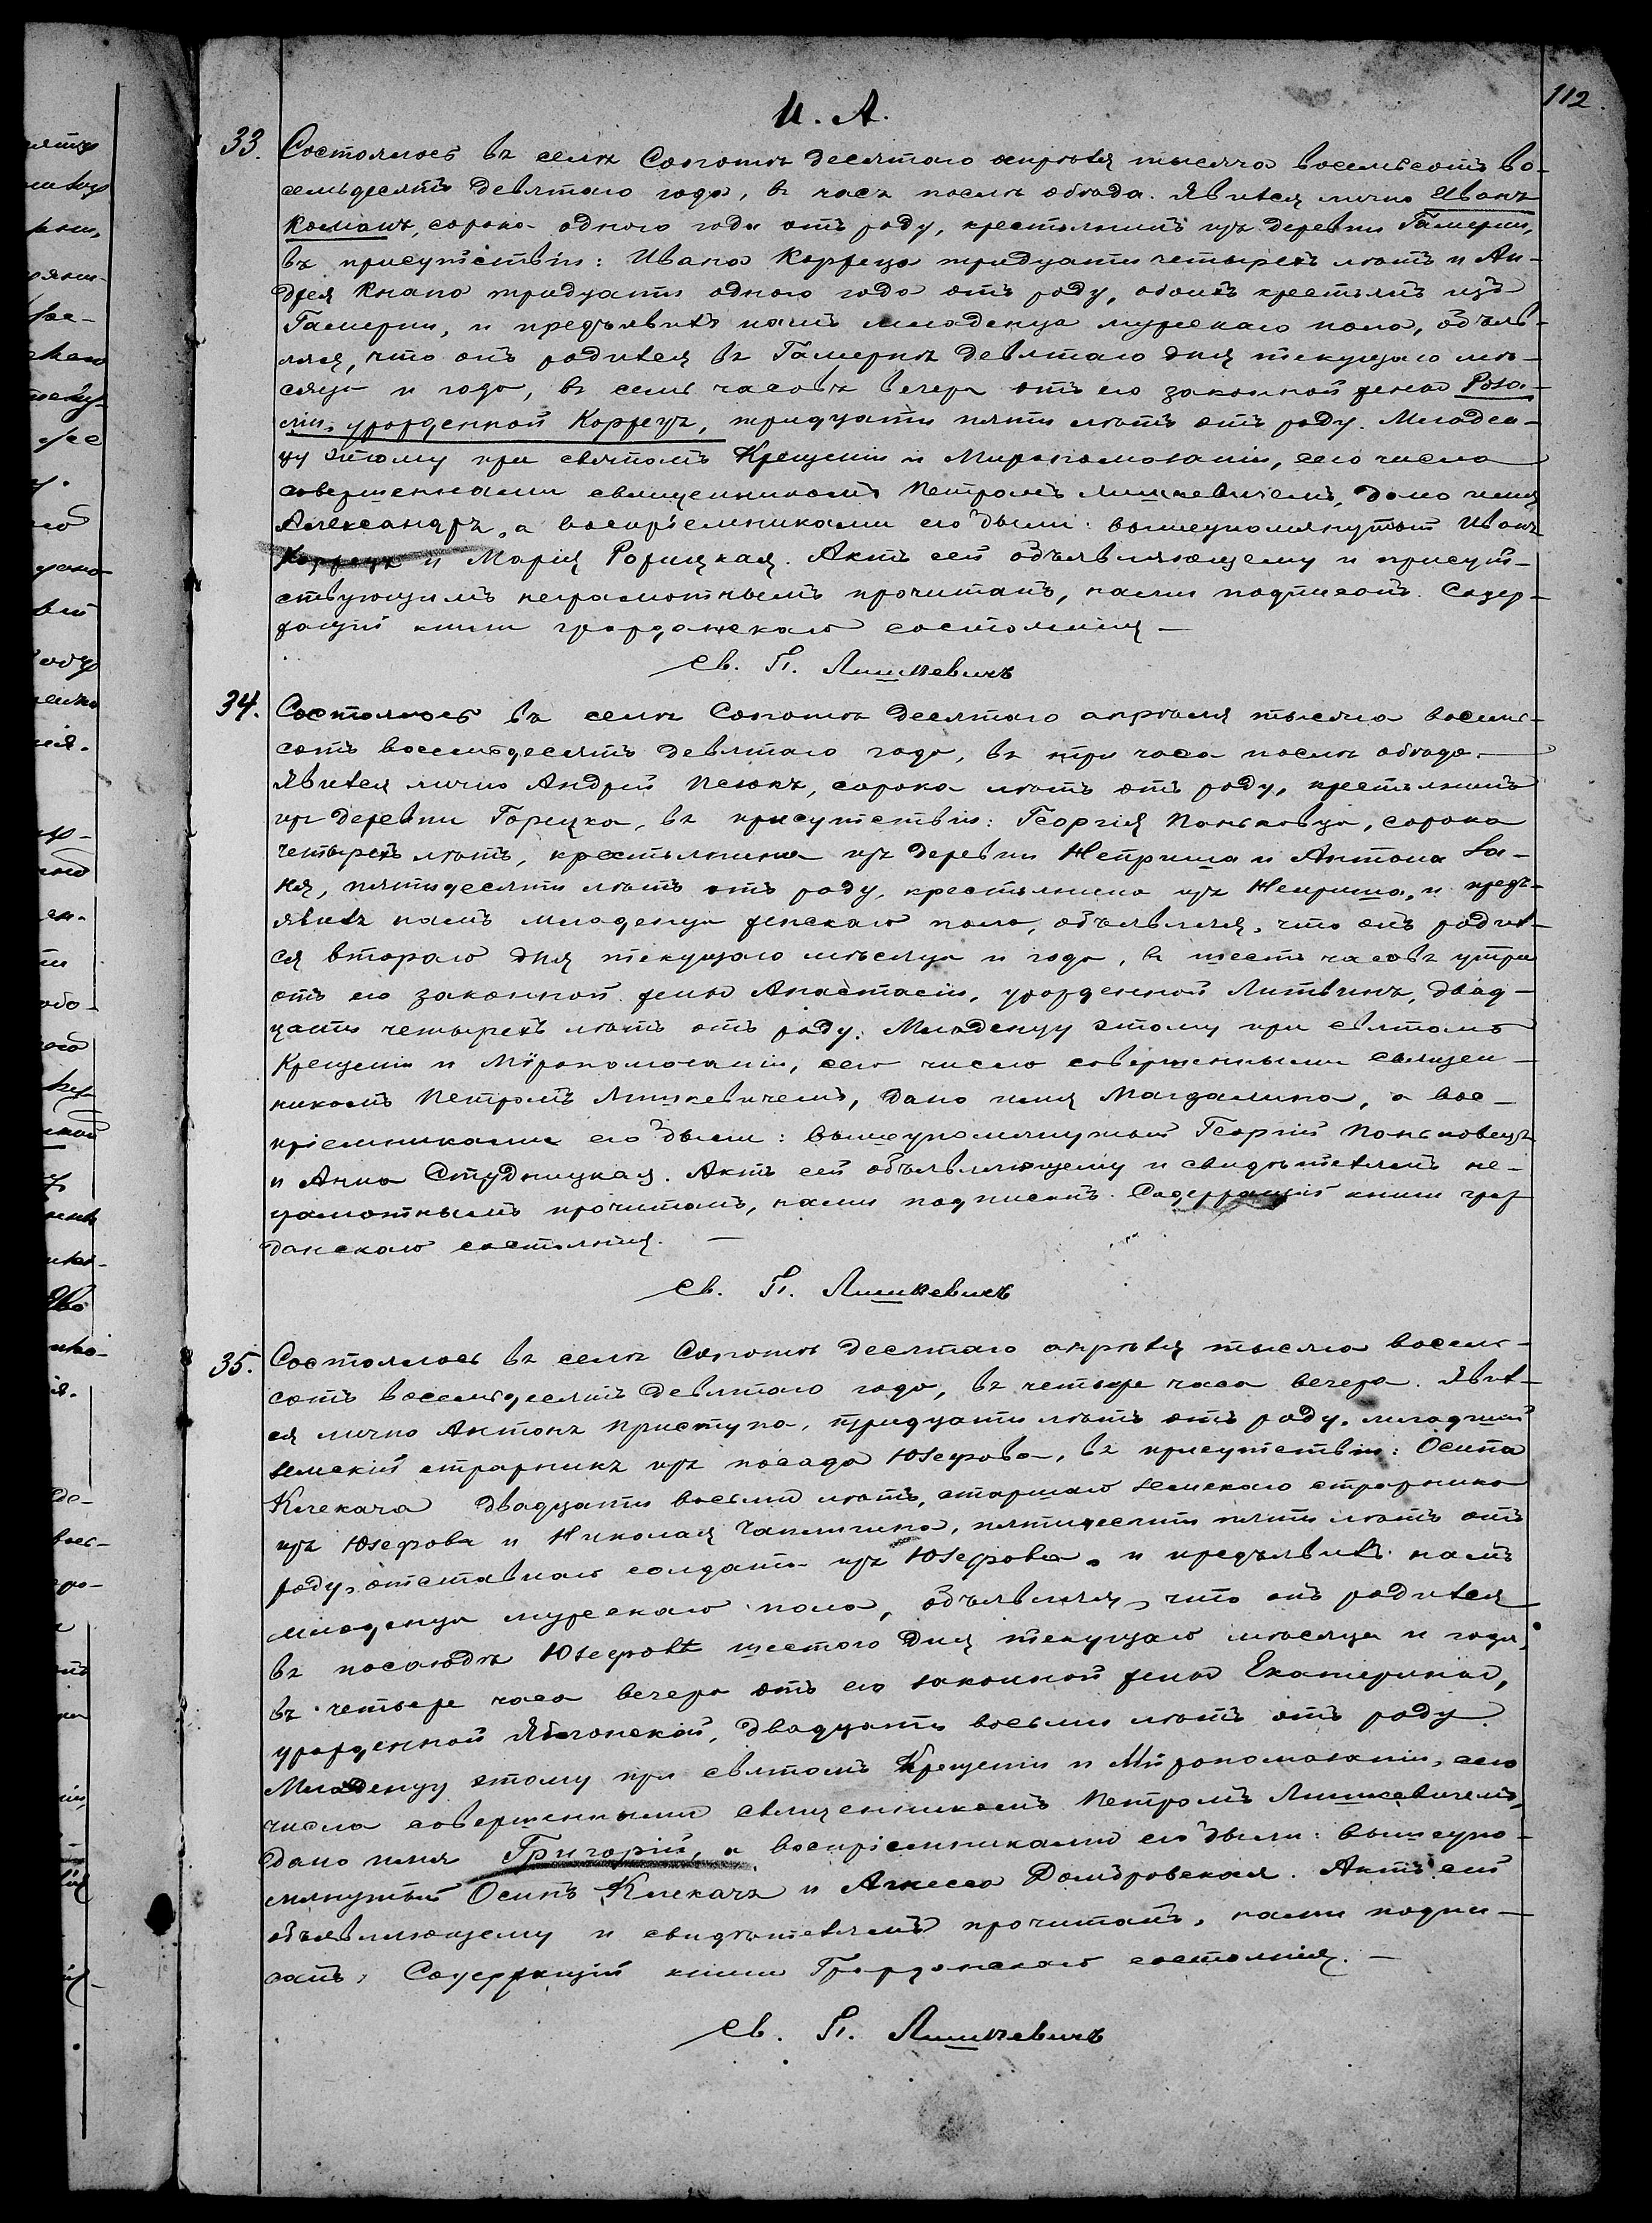 И. А.
112
33. Состоялось въ селѣ Сопотѣ десятаго апрѣля тысяча восемьсотъ во-
семьдесятъ девятаго года, въ часъ послѣ обѣда. Явился лично Иванъ
Команъ, сорока одного года отъ роду, крестьянинъ изъ деревни Гамерни,
въ присутствіи: Ивана Коржеца тридцати четырехъ лѣтъ и Ан-
дрея Кнапа тридцати одного года отъ роду, обоихъ крестьянъ изъ
Гамерни, и предъявилъ намъ младенца мужескаго пола, объяв-
ляя, что онъ родился въ Гамернѣ девятаго дня текущаго мѣ-
сяца и года, въ семь часовъ вечера отъ его законной жены Роза-
ліи, урожденной Коржецъ, тридцати пяти лѣтъ отъ роду. Младен-
цу этому при святомъ Крещеніи и Миропомазаніи, сего числа
совершенными священникомъ Петромъ Лишкевичемъ, дано имя
Александръ, а воспріемниками его были: вышеупомянутый Иванъ
Коржецъ и Марія Рожицкая. Актъ сей объявляющему и присут-
ствующимъ неграмотнымъ прочитанъ, нами подписанъ. Содер-
жащій книги гражданскаго состоянія –
Св. П. Лишкевичъ
34. Состоялось въ селѣ Сопотѣ десятаго апрѣля тысяча восемь-
сотъ восемьдесятъ девятаго года, въ три часа послѣ обѣда. –
Явился лично Андрей Псюкъ, сорока лѣтъ отъ роду, крестьянинъ
изъ деревни Горецка, въ присутствіи: Георгія Паньковца, сорока
четырехъ лѣтъ, крестьянина изъ деревни Неприша и Антона За-
ня, пятидесяти лѣтъ отъ роду, крестьянина изъ Неприша, и предъ-
явилъ намъ младенца женскаго пола, объявляя, что онъ родил-
ся втораго дня текущаго мѣсяца и года, въ шесть часовъ утра
отъ его законной жены Анастасіи, урожденной Литвинъ, двад-
цати четырехъ лѣтъ отъ роду. Младенцу этому при святомъ
Крещеніи и Мѵропомазаніи, сего числа совершенными священ-
никомъ Петромъ Лишкевичемъ, дано имя Магдалина, а вос-
пріемниками его были: вышеупомянутый Георгій Паньковецъ
и Анна Студницкая. Актъ сей объявляющему и свидѣтелямъ не-
грамотнымъ прочитанъ, нами подписанъ. Содержащій книги граж
данскаго состоянія. –
Св. П. Лишкевичъ
35. Состоялось въ селѣ Сопотѣ десятаго апрѣля тысяча восемь-
сотъ восемьдесятъ девятаго года, въ четыре часа вечера. Явил-
ся лично Антонъ Приступа, тридцати лѣтъ отъ роду, младшій
земскій стражникъ изъ посада Юзефова, въ присутствіи: Осипа
Клекача двадцати восьми лѣтъ, старшаго земскаго стражника
изъ Юзефова и Николая Чаплыгина, пятидесяти пяти лѣтъ отъ
роду, отставнаго солдата изъ Юзефова, и предъявилъ намъ
младенца мужескаго пола, объявляя, что онъ родился
въ посадѣ Юзефовѣ шестого дня текущаго мѣсяца и года,
въ четыре часа вечера отъ его законной жены Екатерины,
урожденной Яблонской, двадцати восьми лѣтъ отъ роду.
Младенцу этому при святомъ Крещеніи и Мѵропомазаніи, сего
числа совершенными священникомъ Петромъ Лишкевичемъ,
дано имя Григорій, а воспріемниками его были: вышеупо-
мянутый Осипъ Клекачъ и Агнесса Домбровская. Актъ сей
объявляющему и свидѣтелямъ прочитанъ, нами подпи-
санъ, Содержащій книги Гражданскаго состоянія. –
Св. П. Лишкевичъ